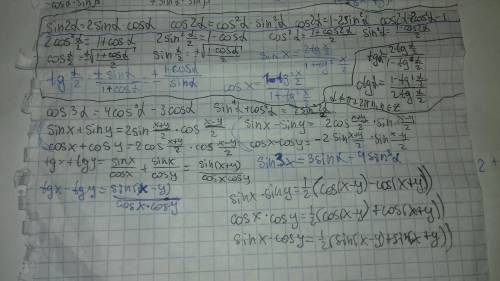 sin2α=2sinα cosα cos2α=cos²α-sin²α cos2α=1-2sin²α cos2α=2cos²α-1
2cos²α/2=1+cosα 2sin²α/2=1-cosα cos²α=(1+cos2α)/2 sin²α=(1-cos2α)/2
cosα/2=±√((1+cosα)/2) sinα/2=±√((1-cosα)/2) sinx=(2tg x/2)/(1+tg² x/2)
tg α/2=sinα/(1+cosα)=(1-cosα)/sinα cosx=(1-tg² x/2)/(1+tg² x/2)
ctgα=(1-tg² α/2)/(2tg α/2)
cos3α=4cos³α-3cosα
sinx+siny=2sin (x+y)/2·cos (x-y)/2 sinx-siny=2cos (x+y)/2·sin (x-y)/2
cosx+cosy=2cos (x+y)/2·cos (x-y)/2 cosx-cosy=-2sin (x+y)/2·sin (x-y)/2
sinx/cosx sin(x+y)/(cosxcosy) sin3x=3sinx-4sin³
tgx-tgy=sin(x-y)/(cosx·cosy)
sinx·siny=1/2(cos(x-y)-cos(x+y))
cosx·cosy=1/2(cos(x-y)+cos(x+y))
sinx·cosy=1/2(sin(x-y)+sin(x+y))